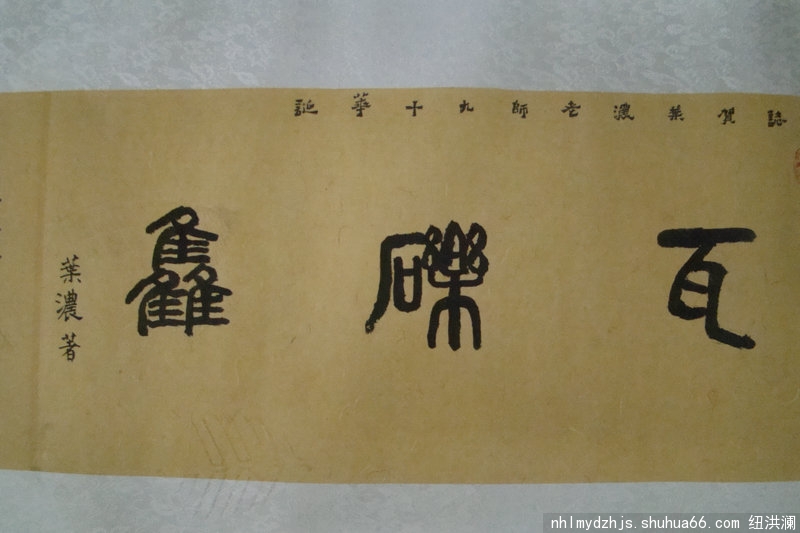 誌賀葉濃老師九十華誕
瓦礫雥
葉濃著
nhlmydzhjs.shuhua66.com 纽洪澜